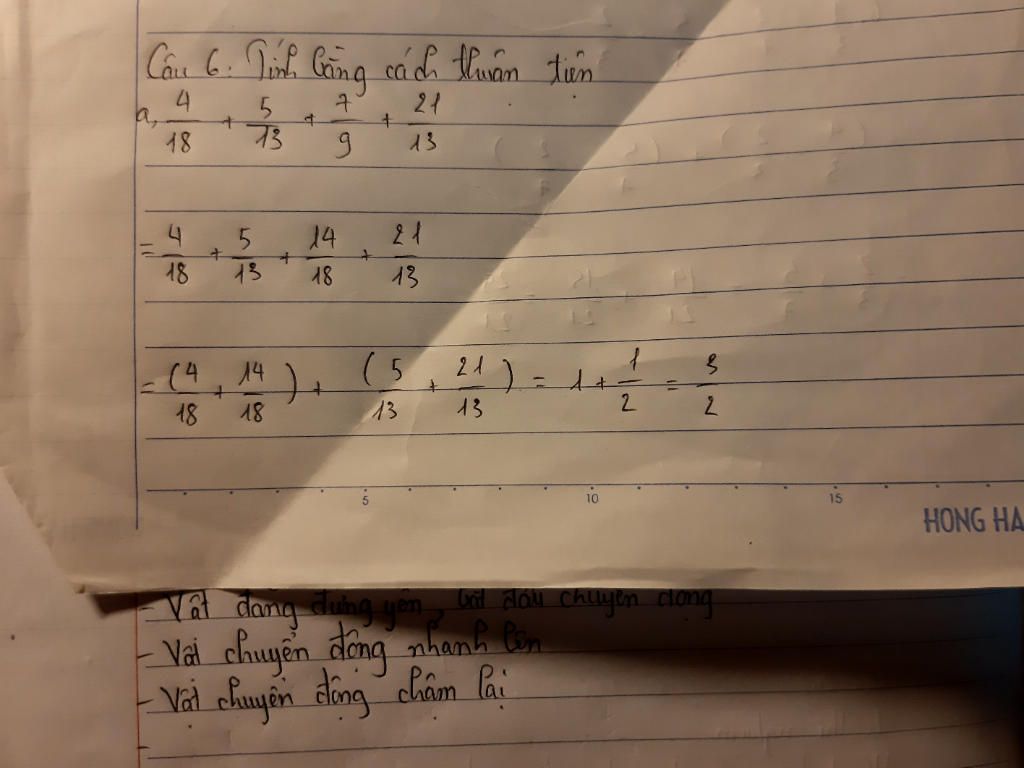 Câu 6. Tính bằng cách thuận tiện
a, 4/18 + 5/13 + 7/9 + 21/13
= 4/18 + 5/13 + 14/18 + 21/13
= (4/18 + 14/18) + (5/13 + 21/13) = 1 + 1/2 = 3/2
5 10 15
HONG HA
- Vật đang đứng yên, bắt đầu chuyển động
- Vật chuyển động nhanh lên
- Vật chuyển động chậm lại
-